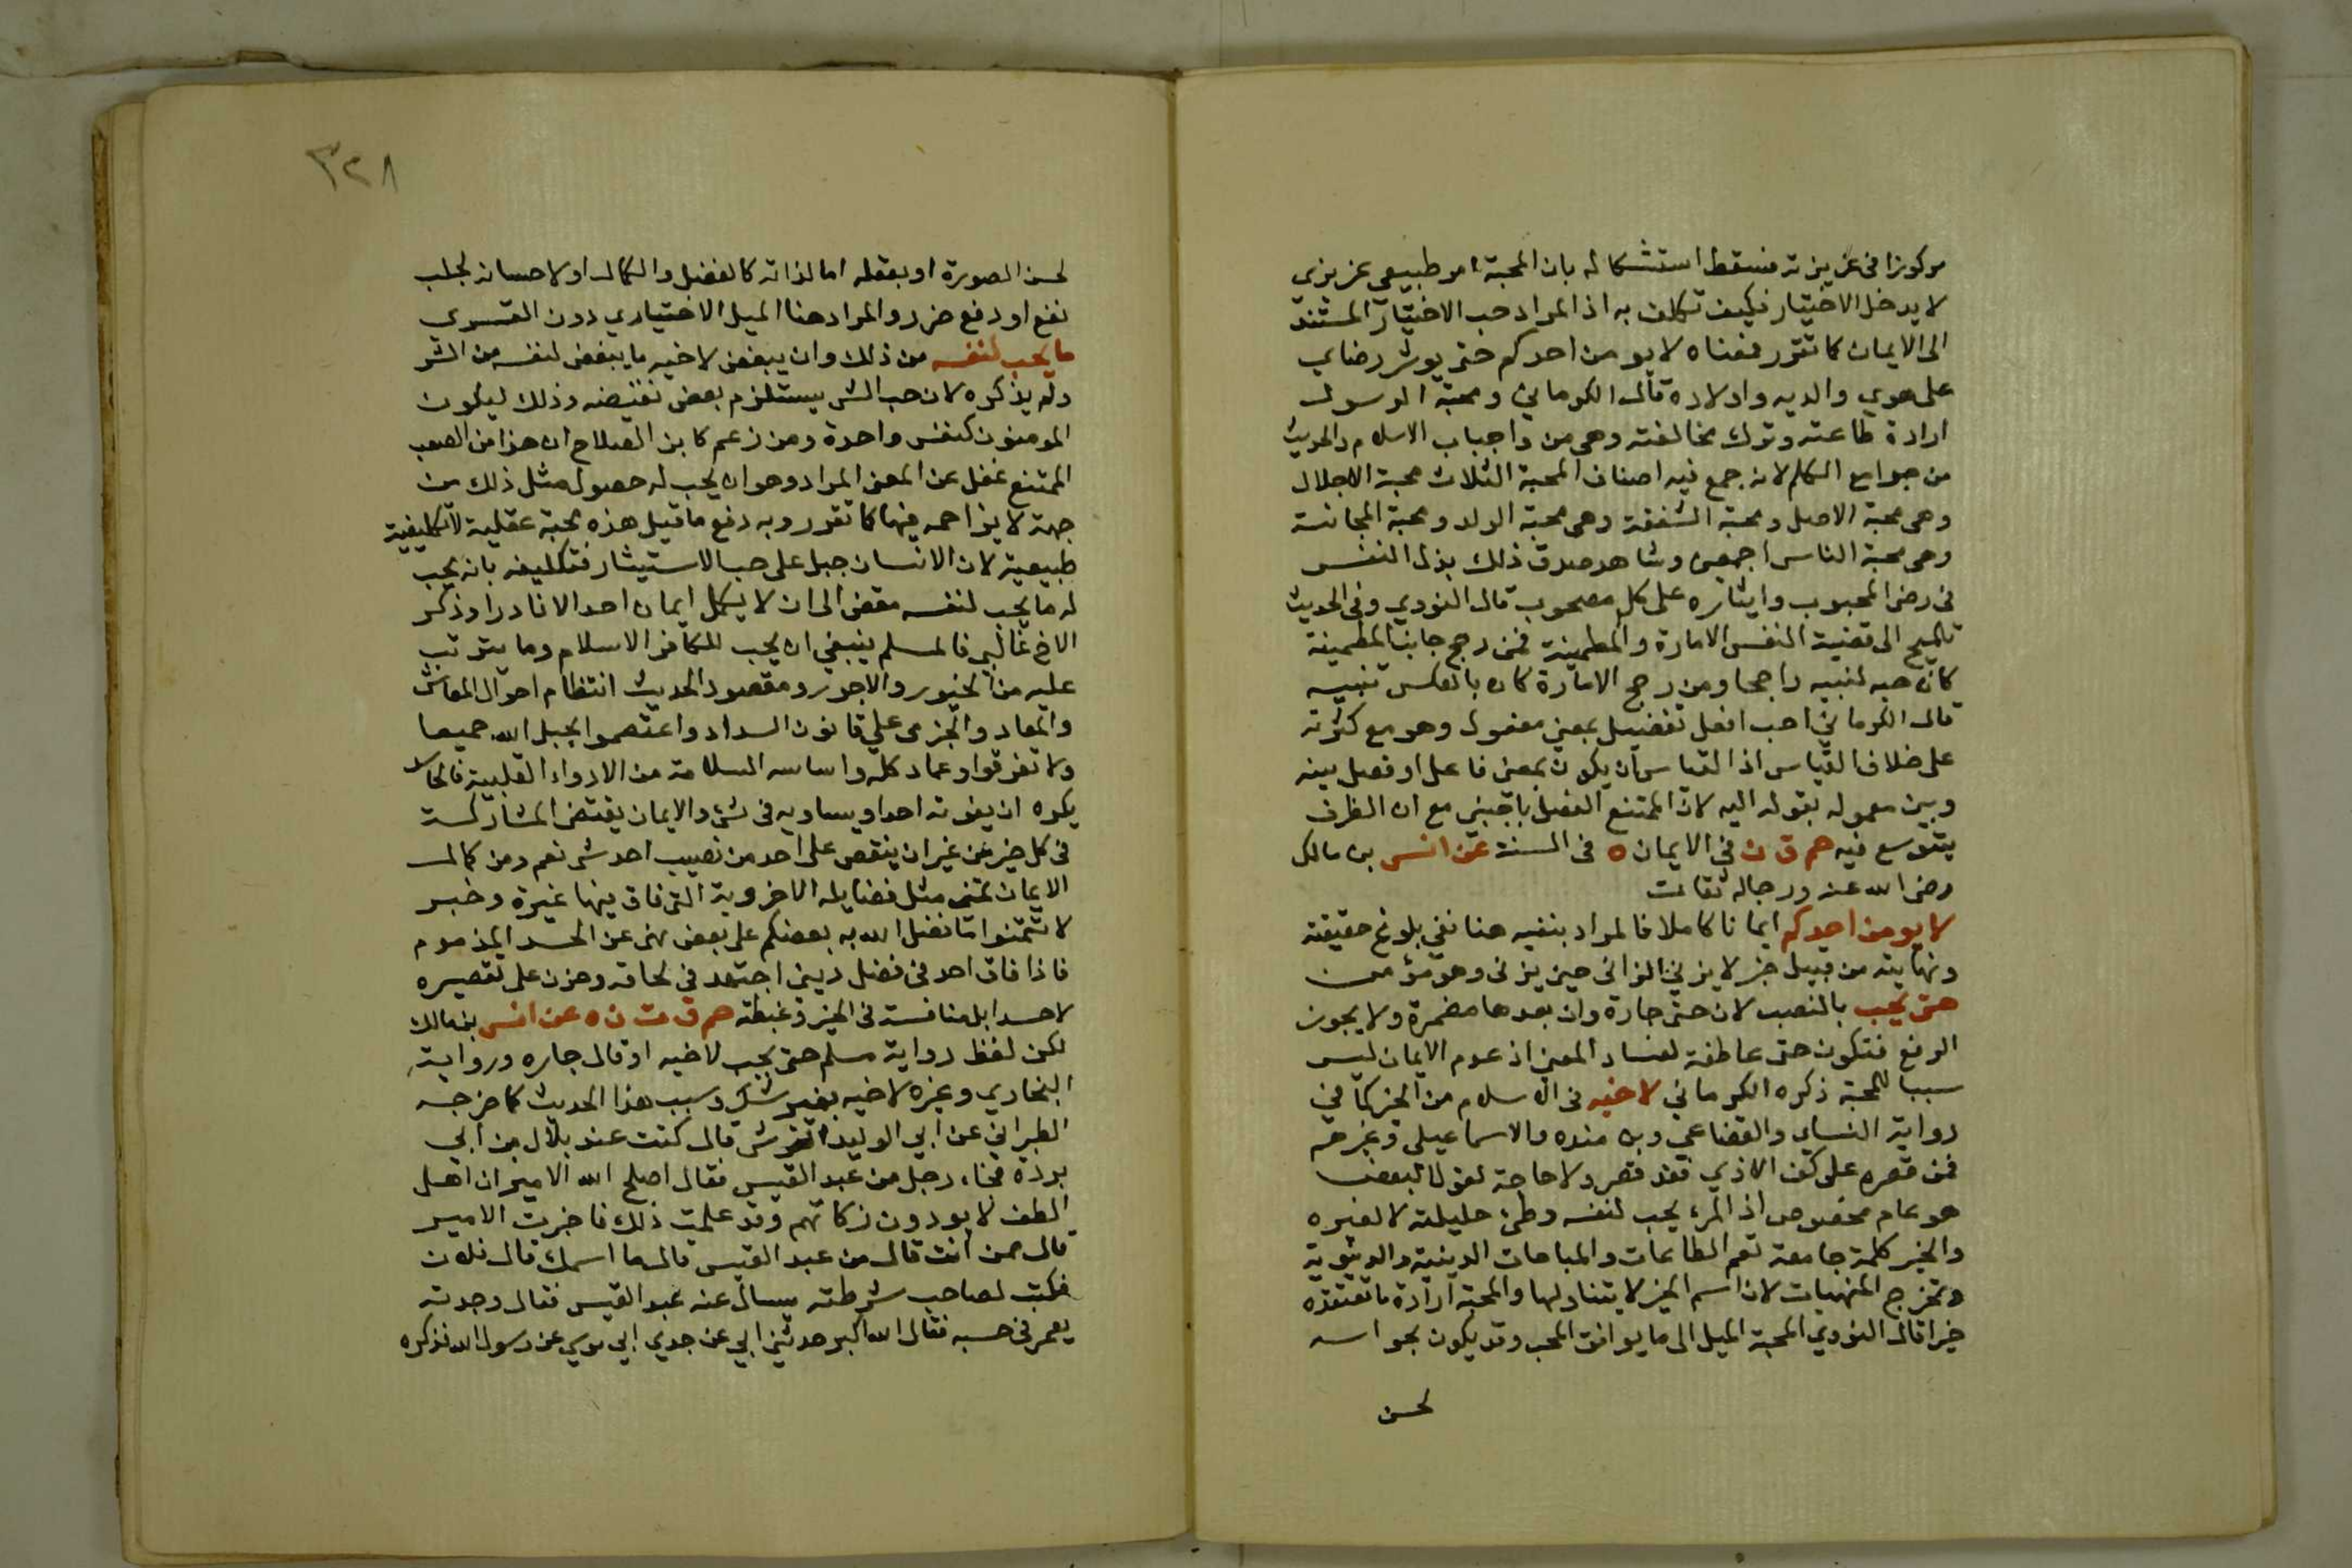 مركوزا في غريزته فسقط استشكاله بان المحبة امر طبيعي غريزي
لا يدخل الاختيار فكيف تكلف به اذ المراد حب الاختيار المستند
الى الايمان كما تقرر فمعناه لا يومن احدكم حتى يوثر رضاي
على هوي والديه واولاده قال الكرماني ومحبة الرسول
ارادة طاعته وترك مخالفته وهى من واجبات الاسلام والحديث
من جوامع الكلم لانه جمع فيه اصناف المحبة الثلاث محبة الاجلال
وهى محبة الاصل ومحبة الشفقة وهى محبة الولد ومحبة المجانسة
وهى محبة الناس اجمعين وشاهد صدق ذلك بذل النفس
في رضى المحبوب وايثاره على كل مصحوب قال النووي وفى الحديث
تلميح الى قضية النفس الامارة والمطمينة فمن رجح جانب المطمينة
كان حبه لنبيه راجحا ومن رجح الامارة كان بالعكس تنبيه
قال الكرماني احب افعل تفضيل بمعنى مفعول وهو مع كثرته
على خلاف القياس اذ القياس ان يكون بمعنى فاعل او فصل بينه
وبين معموله بقوله اليه لان الممتنع الفصل باجنبي مع ان الظرف
يتوسع فيه حم ق ن في الايمان ه فى السنة عن انس بن مالك
رضى الله عنه ورجاله ثقات
لا يومن احدكم ايمانا كاملا فالمراد بنفيه هنا نفي بلوغ حقيقته
ونهايته من قبيل خبر لا يزني الزاني حين يزنى وهو مؤمن
حتى يحب بالنصب لان حتى جارة وان بعدها مضمرة ولا يجوز
الرفع فتكون حتى عاطفة لفساد المعنى اذ عدم الايمان ليس
سببا للمحبة ذكره الكرماني لاخيه فى الاسلام من الخير كما في
رواية النساي والقضاعي وبن منده والاسماعيلي وغيرهم
فمن قصره على كف الاذي فقد قصر ولا حاجة لقول البعض
هو عام مخصوص اذ المرء يحب لنفسه وطئ حليلته لا لغيره
والخير كلمة جامعة تعم الطاعات والمباحات الدينية والدنيوية
وتخرج المنهيات لان اسم الخير لا يتناولها والمحبة ارادة ما تعتقده
خيرا قال النووي المحبة الميل الى ما يوافق المحب وقد يكون بحواسه
لحسن
٣٢٨
لحسن الصورة او بعقله اما لذاته كالفضل والكمال او لاحسانه لجلب
نفع او دفع ضرر والمراد هنا الميل الاختياري دون القسري
ما يحب لنفسه من ذلك وان يبغض لاخيه ما يبغض لنفسه من الشر
ولم يذكره لان حب الشى يستلزم بعض نقيضه وذلك ليكون
المومنون كنفس واحدة ومن زعم كابن الصلاح ان هذا من الصعب
الممتنع غفل عن المعنى المراد وهو ان يحب له حصول مثل ذلك من
جهة لا يزاحمه فيها كما تقرر وبه دفع ما قيل هذه محبة عقلية لا تكليفية
طبيعية لان الانسان جبل على حب الاستيثار فتكليفه بانه يحب
له ما يحب لنفسه مفض الى ان لا يكمل ايمان احد الا نادرا وذكر
الاخ غالبي فالمسلم ينبغي ان يحب للكافر الاسلام وما يترتب
عليه من الخيور والاجور ومقصود الحديث انتظام احوال المعاش
والمعاد والجرى على قانون السداد واعتصموا بحبل الله جميعا
ولا تفرقوا وعماد كله واساسه السلامة من الادواء القلبية فالحاسد
يكره ان يفوته احد او يساويه فى شئ والايمان يقتضى المشاركة
فى كل خير من غير ان ينقص على احد من نصيب احد شى نعم ومن كمال
الايمان تمنى مثل فضايله الاخروية التى فاق فيها غيره وخبر
لا تتمنوا ما فضل الله به بعضكم على بعض نهى عن الحسد المذموم
فاذا فاق احد فى فضل ديني اجتهد فى لحاقه وحزن على تقصيره
لا حسدا بل منافسة فى الخير وغبطة حم ق ت ن ه عن انس بن مالك
لكن لفظ رواية مسلم حتى يحب لاخيه او قال جاره ورواية
البخاري وغيره لاخيه بغير شك وسبب هذا الحديث كما خرجه
الطبراني عن ابي الوليد القرشى قال كنت عند بلال بن ابي
برده فجاء رجل من عبد القيس فقال اصلح الله الامير ان اهل
الطف لا يودون زكاتهم وقد علمت ذلك فاخبرت الامير
قال ممن انت قال من عبد القيس قال ما اسمك قال فلان
فكتب لصاحب شرطته يسال عنه عبد القيس فقال وجدته
يعمر فى حسبه فقال الله اكبر حدثني ابي عن جدي ابي موسي عن رسول الله فذكره